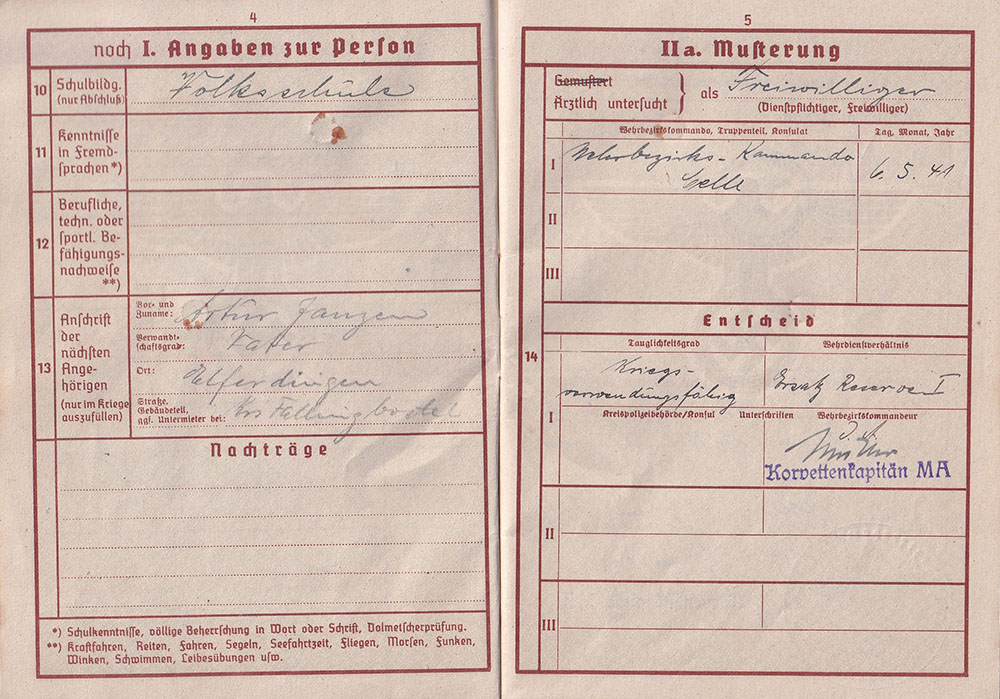 4
noch I. Angaben zur Person
10 Schulbildg. (nur Abschluß)
Volksschule
11 Kenntnisse in Fremd-
sprachen *)
12 Berufliche,
techn. oder
sportl. Be-
fähigungs-
nachweise
**)
13 Anschrift
der
nächsten
Ange-
hörigen
(nur im Kriege
auszufüllen)
Vor- und
Zuname: Artur Jansen
Verwandt-
schaftsgrad: Vater
Ort: Elferdingen
Straße,
Gebäudeteil,
ggf. Untermieter bei: Krs Fallingbostel
Nachträge
*) Schulkenntnisse, völlige Beherrschung in Wort oder Schrift, Dolmetscherprüfung.
**) Kraftfahren, Reiten, Fahren, Segeln, Seefahrtzeit, Fliegen, Morsen, Funken,
Winken, Schwimmen, Leibesübungen usw.
5
IIa. Musterung
Gemustert
Ärztlich untersucht } als Freiwilliger
(Dienstpflichtiger, Freiwilliger)
Wehrbezirkskommando, Truppenteil, Konsulat
Tag, Monat, Jahr
I Wehrbezirks-Kommando
Celle
6. 5. 41
II
III
Entscheid
14
Tauglichkeitsgrad
Wehrdienstverhältnis
I
Kriegs-
verwendungsfähig
Ersatz Reserve I
Kreispolizeibehörde/Konsul Unterschriften Wehrbezirkskommandeur
Korvettenkapitän MA
II
III